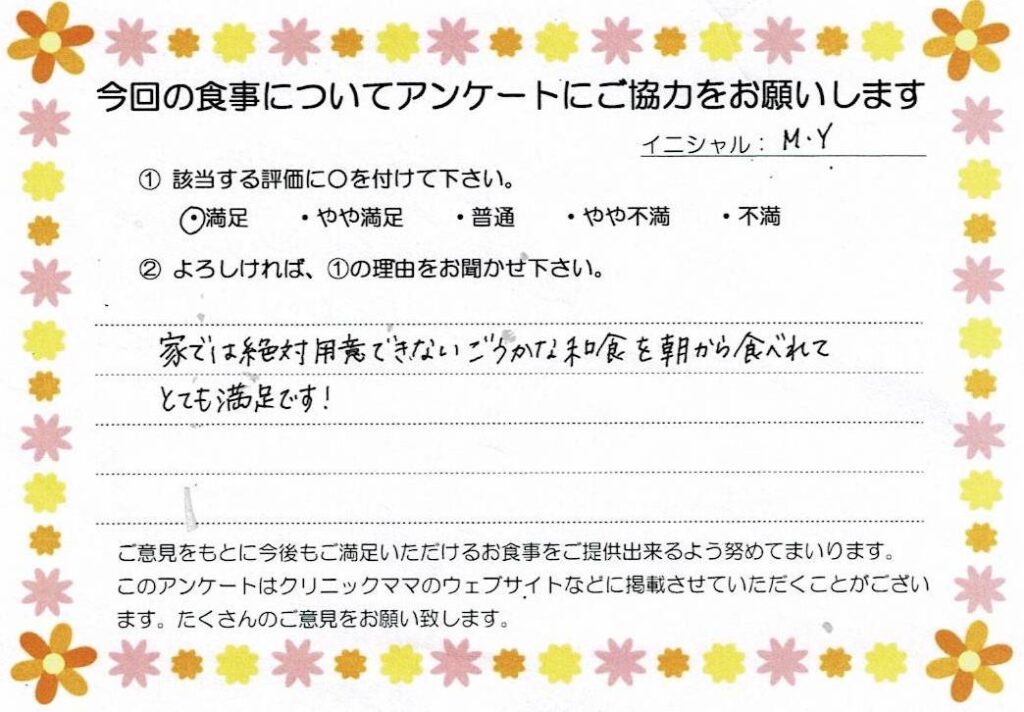 今回の食事についてアンケートにご協力をお願いします
イニシャル： M・Y
① 該当する評価に〇を付けて下さい。
・満足 ・やや満足 ・普通 ・やや不満 ・不満
② よろしければ、①の理由をお聞かせ下さい。
家では絶対用意できないごうかな和食を朝から食べれて
とても満足です！
ご意見をもとに今後もご満足いただけるお食事をご提供出来るよう努めてまいります。
このアンケートはクリニックママのウェブサイトなどに掲載させていただくことがござい
ます。たくさんのご意見をお願い致します。